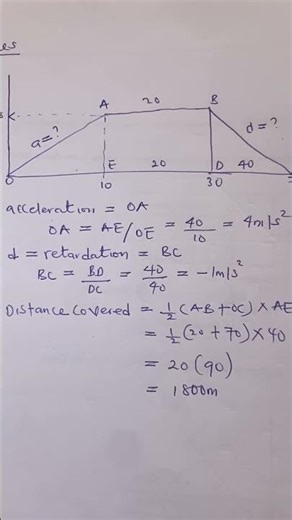 A 20 B
a=?
d=?
E 20 D 40
0 10 30
acceleration = OA
OA = AE/OE = 40/10 = 4m/s²
d = retardation = BC
BC = BD/DC = 40/40 = -1m/s²
Distance Covered = ½(AB+OC) × AE
= ½(20 + 70) × 40
= 20(90)
= 1800m